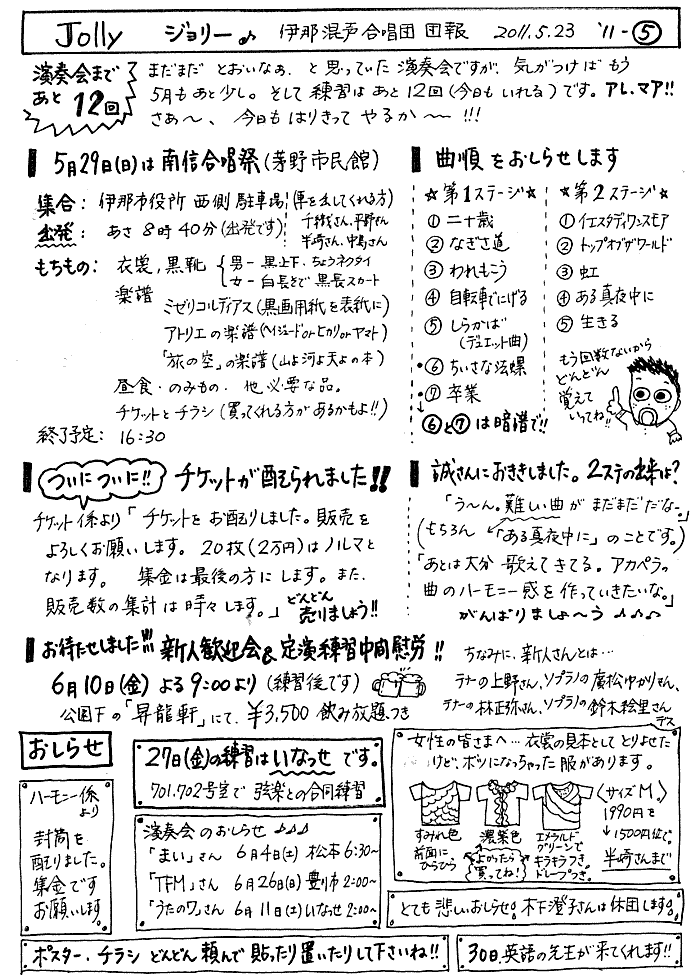 Jolly ジョリー♪ 伊那混声合唱団 団報 2011.5.23 '11-⑤
演奏会まで
あと 12回
まだまだ とおいなぁ、と 思っていた 演奏会ですが、気がつけば もう
5月もあと少し。そして 練習は あと12回(今日も いれる)です。アレ、マア!!
さあ〜、今日も はりきって やるか〜 !!!
5月29日(日)は 南信合唱祭(茅野市民館)
集合: 伊那市役所 西側 駐車場
(車を出してくれる方)
出発: あさ 8時40分(出発です)
千枝さん、平野さん
半崎さん、中島さん
もちもの: 衣裳, 黒靴
男- 黒上下、ちょうネクタイ
女- 白長そで 黒長スカート
楽譜
ミゼリコルディアス(黒画用紙を表紙に)
アトリエの楽譜(ヘイジュードorヒカリorヤマト)
「旅の空」の楽譜(山よ河よ天よの本)
昼食・のみもの・他必要な品。
チケットとチラシ(買ってくれる方があるかもよ!!)
終了予定: 16:30
曲順をおしらせします
☆第1ステージ☆
① 二十歳
② なぎさ道
③ われもこう
④ 自転車でにげる
⑤ しらかば
(デュエット曲)
⑥ ちいさな法螺
⑦ 卒業
⑥と⑦は暗譜で!!
☆第2ステージ☆
① イエスタディワンスモア
② トップオブザワールド
③ 虹
④ ある真夜中に
⑤ 生きる
もう回数ないから
どんどん
覚えて
いってね!!
ついについに!! チケットが配られました!!
チケット係より「チケットをお配りしました。販売を
よろしくお願いします。20枚(2万円)はノルマと
なります。 集金は最後の方にします。また、
販売数の集計は時々します。」どんどん
売りましょう!!
誠さんにおききしました。2ステの出来は?
「う〜ん。難しい曲がまだまだだな〜。」
(もちろん「ある真夜中に」のことです。)
「あとは大分歌えてきてる。アカペラの
曲のハーモニー感を作っていきたいな。」
がんばりましょ〜う♪♪♪
お待たせしました!!! 新人歓迎会&定演練習中間慰労!!
6月10日(金)よる9:00より(練習後です)
公園下の「昇龍軒」にて、¥3,500 飲み放題つき
ちなみに、新人さんとは…
テナーの上野さん、ソプラノの廣松ゆかりさん、
テナーの林正弥さん、ソプラノの鈴木絵里さん
デス
おしらせ
ハーモニー係
より
封筒を
配りました。
集金です
お願いします。
27日(金)の練習はいなっせです。
701.702号室で 弦楽との合同練習
演奏会のおしらせ♪♪♪
「まい」さん 6月4日(土) 松本 6:30〜
「TFM」さん 6月26日(日) 豊川市 2:00〜
「うたのワ」さん 6月11日(土) いなっせ 2:00〜
女性の皆さまへ…衣裳の見本としてとりよせた
けど、ボツになっちゃった服があります。
すみれ色
前面に
ひらひら
濃紫色
よかったら
買ってね!
エメラルド
グリーンで
キラキラつき。
ドレープつき。
<サイズM。>
1990円を
→1500円位で。
半崎さんまで
とても悲しいおしらせ。木下澄子さんは休団します。
ポスター、チラシ どんどん頼んで貼ったり置いたりして下さいね!!
30日、英語の先生が来てくれます!!